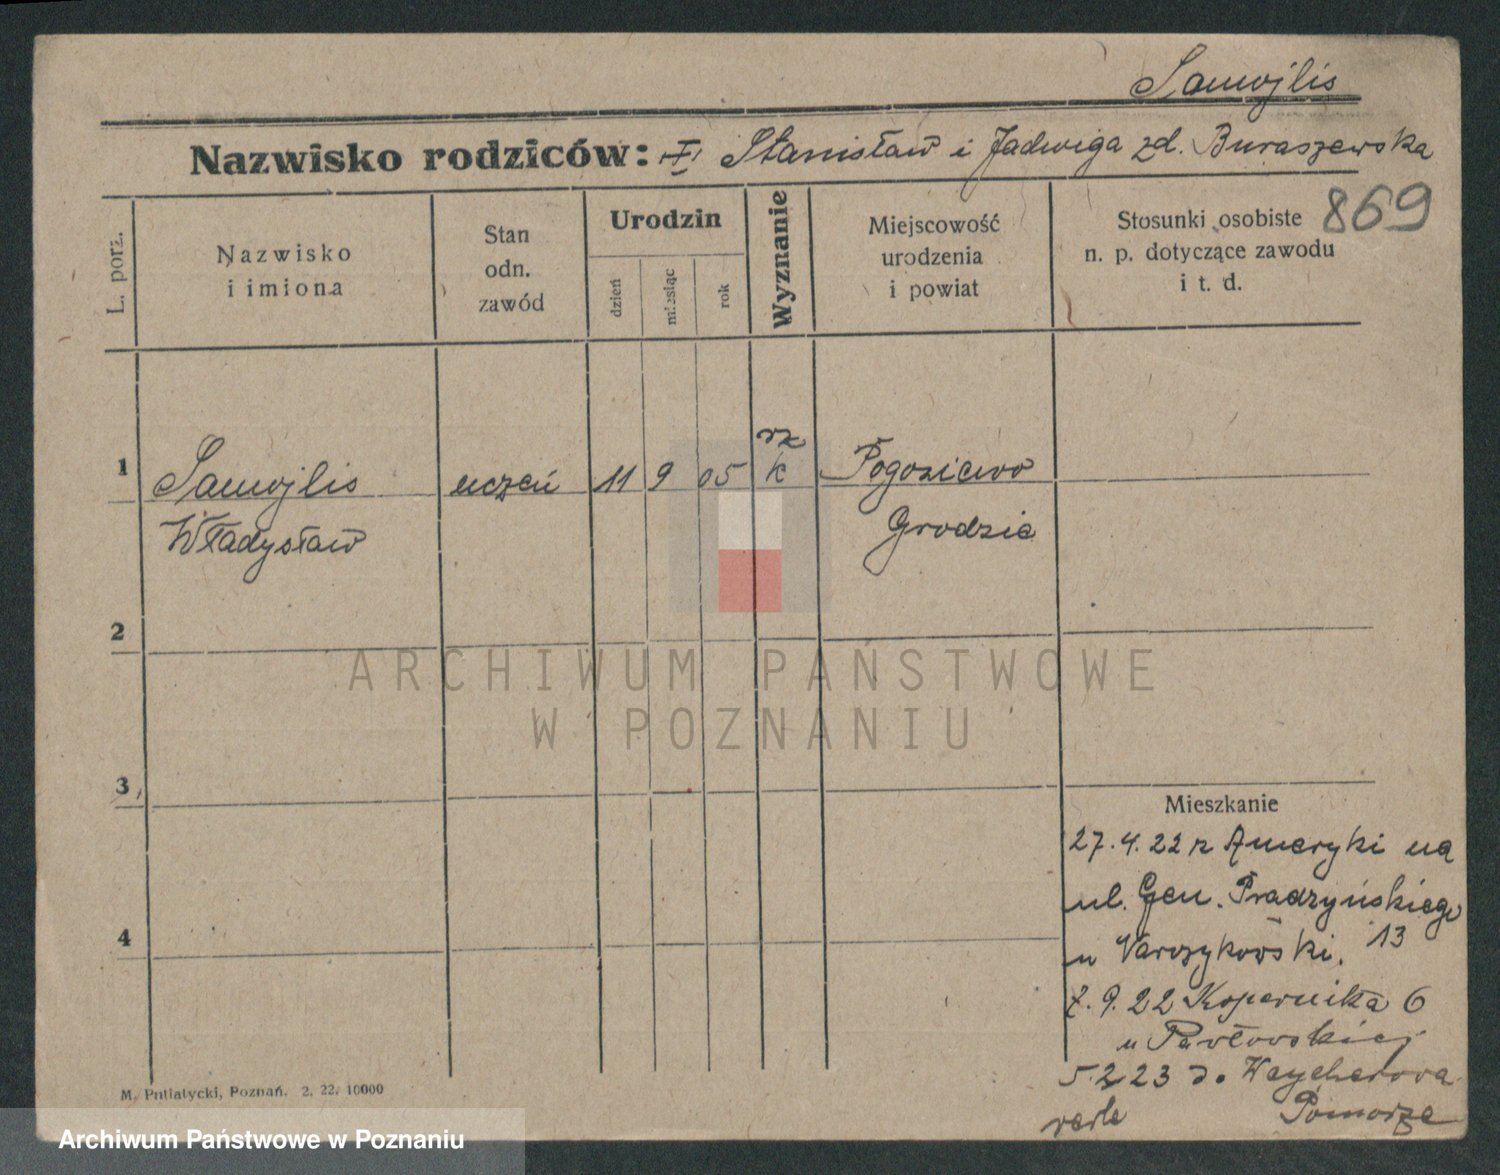 Samojlis
Nazwisko rodziców: Stanisław i Jadwiga zd. Buraszewska
869
L. porz.
Nazwisko
i imiona
Stan
odn.
zawód
Urodzin
dzień
miesiąc
rok
Wyznanie
Miejscowość
urodzenia
i powiat
Stosunki osobiste
n. p. dotyczące zawodu
i t. d.
1
Samojlis
Władysław
uczeń
11
9
05
rz
k
Grodzie
2
ARCHIWUM PAŃSTWOWE
W POZNANIU
3
4
Mieszkanie
27.4.22 z Ameryki na
ul. Gen. Prądzyńskiego
13
u
7.9.22 Kopernika 6
u Pawłowskiej
5.2.23 do Wejherowa
Pomorze
M. Putiatycki, Poznań. 2. 22. 10000
Archiwum Państwowe w Poznaniu